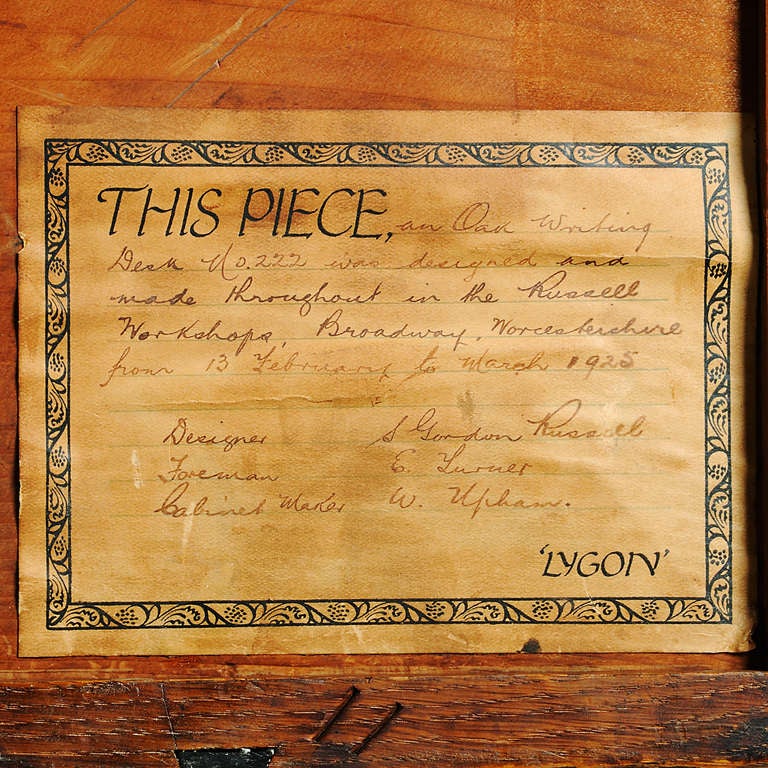 THIS PIECE, an Oak Writing
Desk No. 222 was designed and
made throughout in the Russell
Workshops, Broadway, Worcestershire
from 13 February to March 1925
Designer S Gordon Russell
Foreman E. Turner
Cabinet Maker W. Upham.
'LYGON'